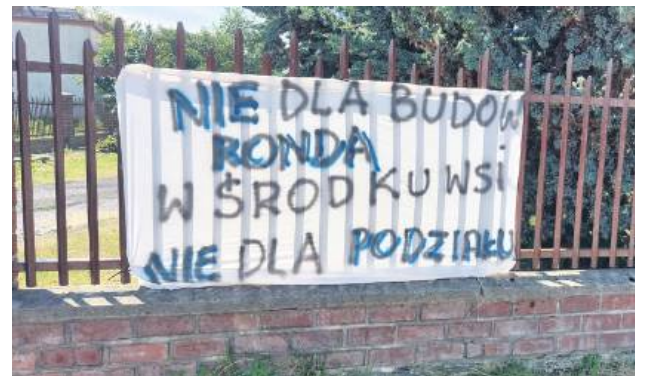 NIE DLA BUDOW
RONDA
W ŚRODKU WSI
NIE DLA PODZIAŁU